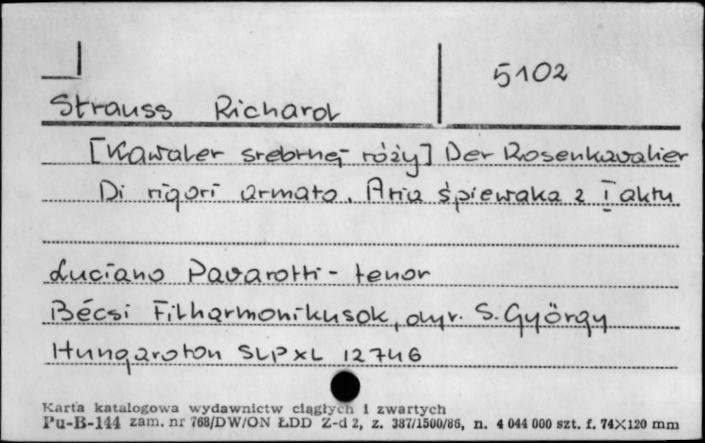 5102
Strauss Richard
[Kawaler srebrnej róży] Der Rosenkavalier
Di rigori armato. Aria śpiewaka z I aktu
Luciano Pavarotti - tenor
Bécsi Filharmonikusok, dyr. S. György
Hungaroton SLPXL 12746
Karta katalogowa wydawnictw ciągłych i zwartych
Pu-B-144 zam. nr 768/DW/ON ŁDD Z-d 2, z. 387/1500/86, n. 4 044 000 szt. f. 74×120 mm